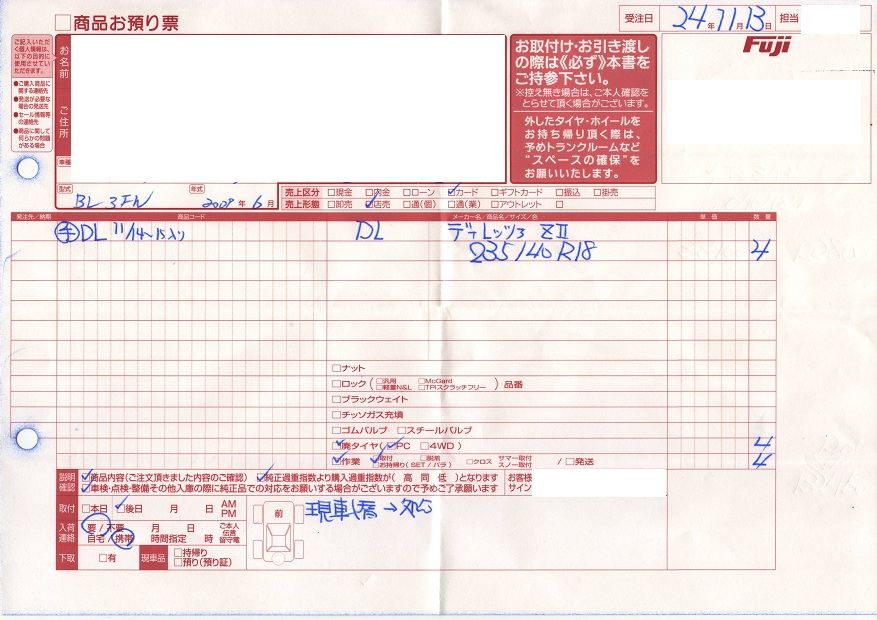 □商品お預り票
受注日 24年11月13日 担当
ご記入いただく個人情報は、以下の目的に使用させていただきます。
●ご購入商品に関する連絡先
●発送が必要な場合の発送先
●セール情報等の連絡先
●商品に関して何らかの問題がある場合
お名前
ご住所
車種
お取付け・お引き渡しの際は《必ず》本書をご持参下さい。
※控え無き場合は、ご本人確認をとらせて頂く場合がございます。
外したタイヤ・ホイールをお持ち帰り頂く際は、予めトランクルームなど“スペースの確保”をお願いいたします。
FUJI
型式 BL3FW 年式 2009年6月
売上区分 □現金 □内金 □ローン ☑カード □ギフトカード □振込 □掛売
売上形態 □卸売 ☑店売 □通(個) □通(業) □アウトレット □
発注先/納期 商品コード メーカー名/商品名/サイズ/色 単価 数量
DL 11/14~15入り DL ディレッツァ ZⅡ
235/40R18 4
□ナット
□ロック(□汎用 □軽量N&L □McGard □TPIスクラッチフリー)品番
□ブラックウェイト
□チッソガス充填
□ゴムバルブ □スチールバルブ
☑廃タイヤ(☑PC □4WD) 4
☑作業 ☑取付 □お持帰り(SET/バラ) □脱着 □クロス サマー取付 スノー取付 / □発送 4
説明確認 ☑商品内容(ご注文頂きました内容のご確認) ☑純正過重指数より購入過重指数が(高 同 低)となります
☑車検・点検・整備その他入庫の際に純正品での対応をお願いする場合がございますので予めご了承願います
お客様サイン
取付 □本日 ☑後日 月 日 AM PM
入荷連絡 要/不要 月 日 ご本人 伝言 留守電
自宅/携帯 時間指定 時
下取 □有 現車品 □持帰り □預り(預り証)
前